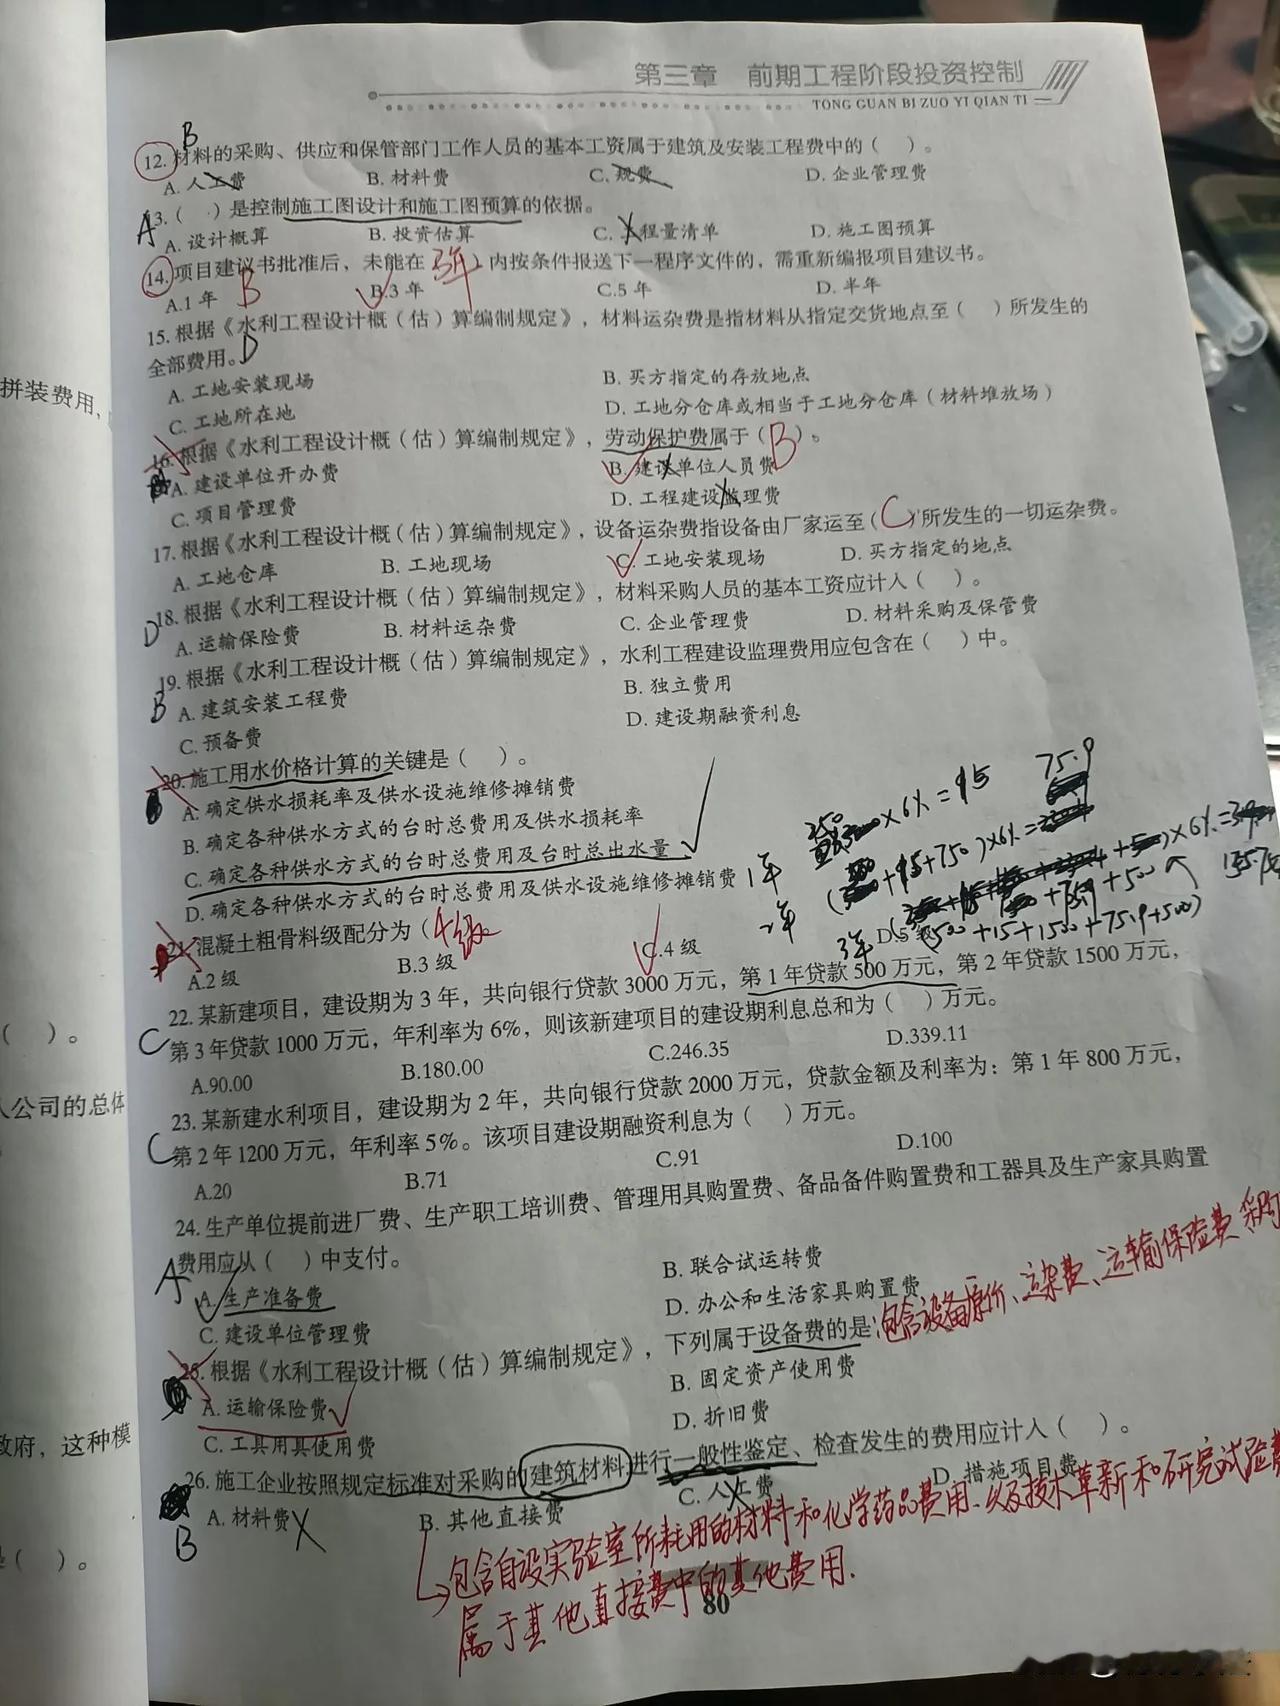 第三章 前期工程阶段投资控制
TONG GUAN BI ZUO YI QIAN TI
B
12. 材料的采购、供应和保管部门工作人员的基本工资属于建筑及安装工程费中的（ ）。
A. 人工费 B. 材料费 C. 规费 D. 企业管理费
A 13.（ ）是控制施工图设计和施工图预算的依据。
A. 设计概算 B. 投资估算 C. 工程量清单 D. 施工图预算
14. 项目建议书批准后，未能在 3年 ）内按条件报送下一程序文件的，需重新编报项目建议书。
A.1 年 B B.3 年 C.5 年 D. 半年
15. 根据《水利工程设计概（估）算编制规定》，材料运杂费是指材料从指定交货地点至（ ）所发生的
全部费用。D
A. 工地安装现场 B. 买方指定的存放地点
C. 工地所在地 D. 工地分仓库或相当于工地分仓库（材料堆放场）
16. 根据《水利工程设计概（估）算编制规定》，劳动保护费属于（B）。
A. 建设单位开办费 B. 建设单位人员费
C. 项目管理费 D. 工程建设监理费
17. 根据《水利工程设计概（估）算编制规定》，设备运杂费指设备由厂家运至（C）所发生的一切运杂费。
A. 工地仓库 B. 工地现场 C. 工地安装现场 D. 买方指定的地点
D 18. 根据《水利工程设计概（估）算编制规定》，材料采购人员的基本工资应计入（ ）。
A. 运输保险费 B. 材料运杂费 C. 企业管理费 D. 材料采购及保管费
19. 根据《水利工程设计概（估）算编制规定》，水利工程建设监理费用应包含在（ ）中。
B A. 建筑安装工程费 B. 独立费用
C. 预备费 D. 建设期融资利息
20. 施工用水价格计算的关键是（ ）。
A. 确定供水损耗率及供水设施维修摊销费
B. 确定各种供水方式的台时总费用及供水损耗率
C. 确定各种供水方式的台时总费用及台时总出水量
D. 确定各种供水方式的台时总费用及供水设施维修摊销费
1年 250 ×6%=15 75.9
2年 ( +15+750)×6%=
3年 (500+15+1500+75.9+500) ×6%=
21. 混凝土粗骨料级配分为（4级
A.2 级 B.3 级 C.4 级 D.5 级
22. 某新建项目，建设期为 3 年，共向银行贷款 3000 万元，第 1 年贷款 500 万元，第 2 年贷款 1500 万元，
C 第 3 年贷款 1000 万元，年利率为 6%，则该新建项目的建设期利息总和为（ ）万元。
A.90.00 B.180.00 C.246.35 D.339.11
23. 某新建水利项目，建设期为 2 年，共向银行贷款 2000 万元，贷款金额及利率为：第 1 年 800 万元，
C 第 2 年 1200 万元，年利率 5%。该项目建设期融资利息为（ ）万元。
A.20 B.71 C.91 D.100
24. 生产单位提前进厂费、生产职工培训费、管理用具购置费、备品备件购置费和工器具及生产家具购置
费用应从（ ）中支付。
A A. 生产准备费 B. 联合试运转费
C. 建设单位管理费 D. 办公和生活家具购置费
25. 根据《水利工程设计概（估）算编制规定》，下列属于设备费的是: 包含设备原价、运杂费、运输保险费 采购
A. 运输保险费 B. 固定资产使用费
C. 工具用具使用费 D. 折旧费
26. 施工企业按照规定标准对采购的建筑材料进行一般性鉴定、检查发生的费用应计入（ ）。
B A. 材料费 B. 其他直接费 C. 人工费 D. 措施项目费
包含自设实验室所耗用的材料和化学药品费用、以及技术革新和研究试验费
属于其他直接费中的其他费用.
80
拼装费用，
（ ）。
人公司的总体
政府，这种模
（ ）。